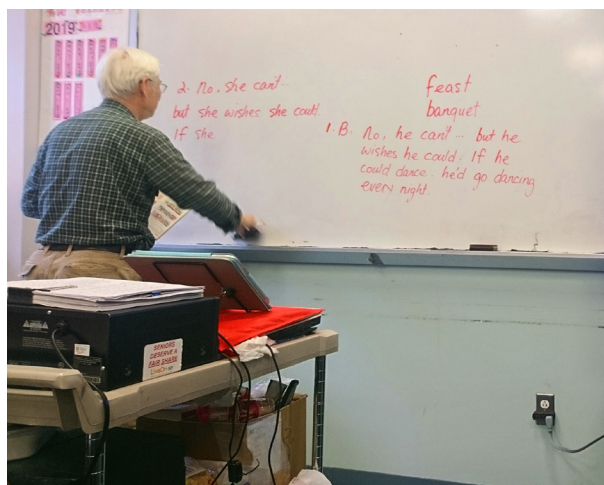 2019
2. No, she can't...
but she wishes she could.
If she
feast
banquet
1. B. No, he can't... but he
wishes he could. If he
could dance.. he'd go dancing
every night.
SENIORS
DESERVE A
FAIR SHARE
LiveOn